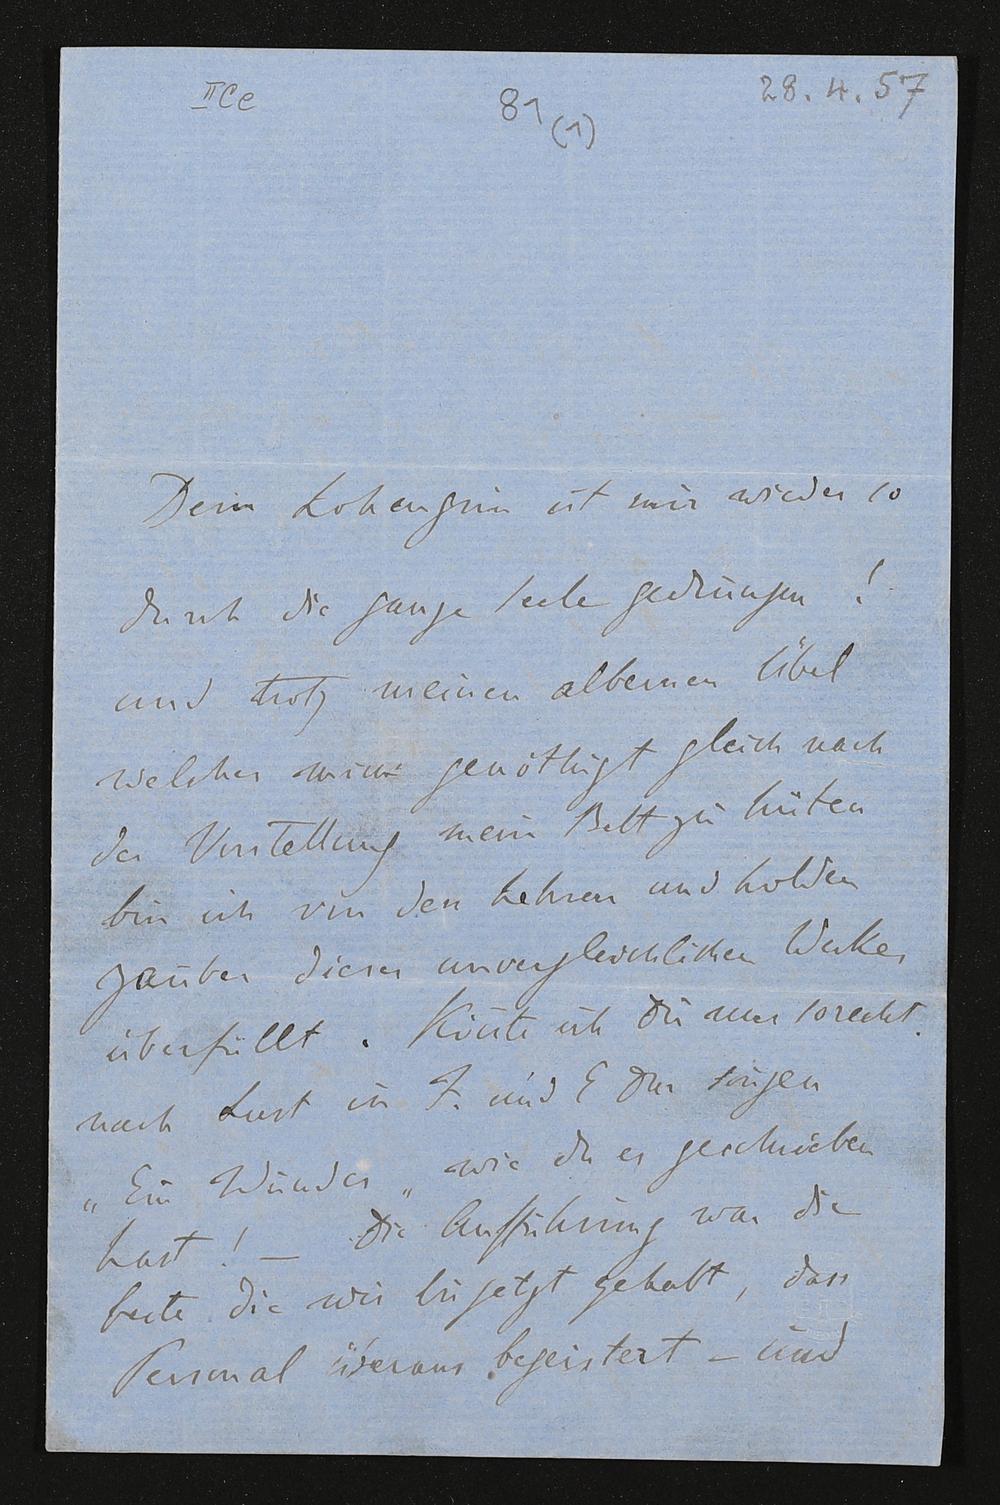 II Ce
81 (1)
28. 4. 57
Dein Lohengrin ist mir wieder so
durch die ganze Seele gedrungen !
und trotz meinen albernen Übel
welches mich genöthigt gleich nach
der Vorstellung mein Bett zu hüten
bin ich von den hehren und holden
Zauber dieses unvergleichlichen Werkes
überfüllt . Könte ich Dir nur so recht
nach Lust in F. und E Dur singen
„Ein Wunder„ wie du es geschrieben
hast ! — Die Aufführung war die
beste die wir bis jetzt gehabt, das
Personal überaus begeistert – und